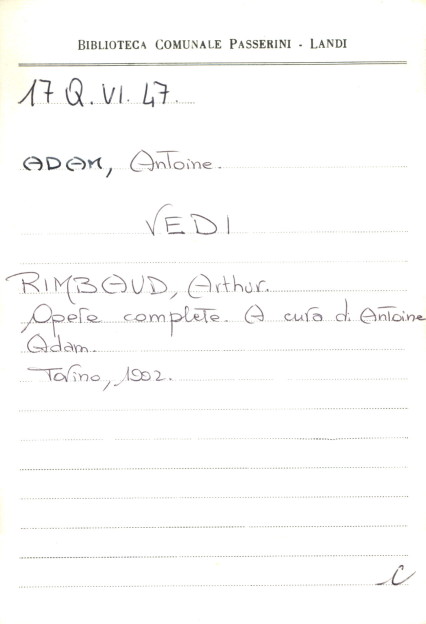 BIBLIOTECA COMUNALE PASSERINI - LANDI
17 Q. VI. 47.
ADAM, Antoine.
VEDI
RIMBAUD, Arthur.
Opere complete. A cura di Antoine
Adam.
Torino, 1992.
C